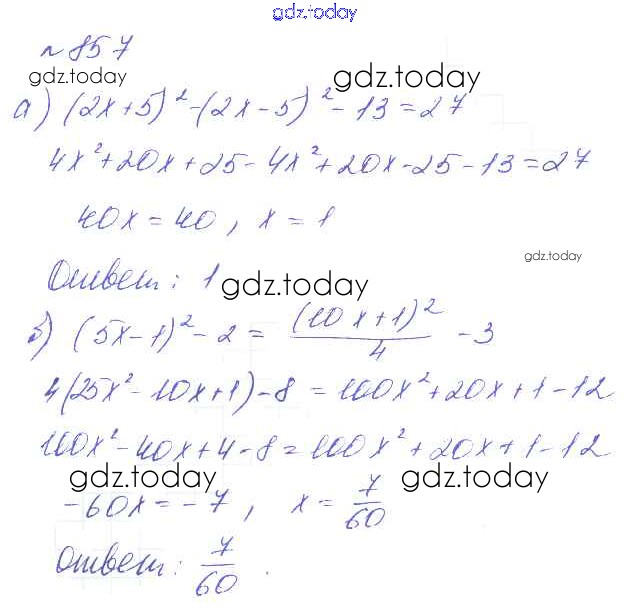 gdz.today
№ 857
gdz.today gdz.today
а) (2x+5)²-(2x-5)²-13=27
4x²+20x+25-4x²+20x-25-13=27
40x=40, x=1
gdz.today
Ответ: 1 gdz.today
б) (5x-1)²-2 = (10x+1)²/4 -3
4(25x²-10x+1)-8=100x²+20x+1-12
100x²-40x+4-8=100x²+20x+1-12
gdz.today gdz.today
-60x=-7, x=7/60
Ответ: 7/60.
gdz.today